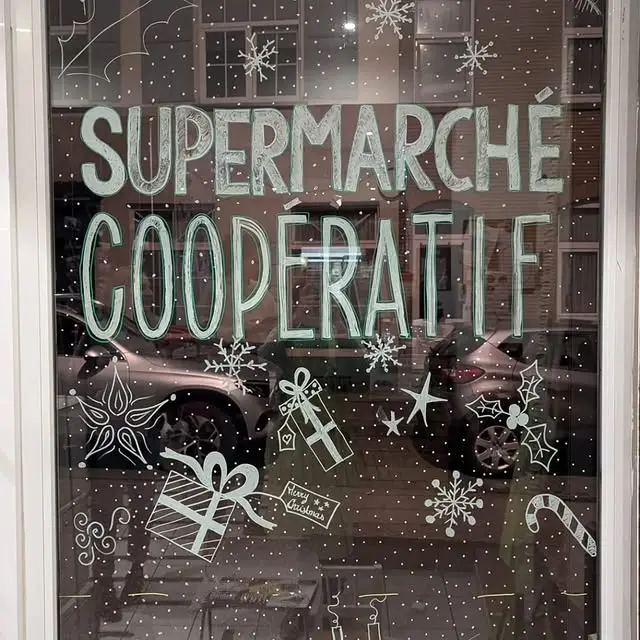 SUPERMARCHÉ
COOPÉRATIF
Merry
Christmas